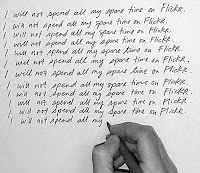 I will not spend all my spare time on Flickr.
I will not spend all my spare time on Flickr.
I will not spend all my spare time on Flickr.
I will not spend all my spare time on Flickr.
I will not spend all my spare time on Flickr.
I will not spend all my spare time on Flickr.
I will not spend all my spare time on Flickr.
I will not spend all my spare time on Flickr.
I will not spend all my spare time on Flickr.
I will not spend all my spare time on Flickr.
I will not spend all my